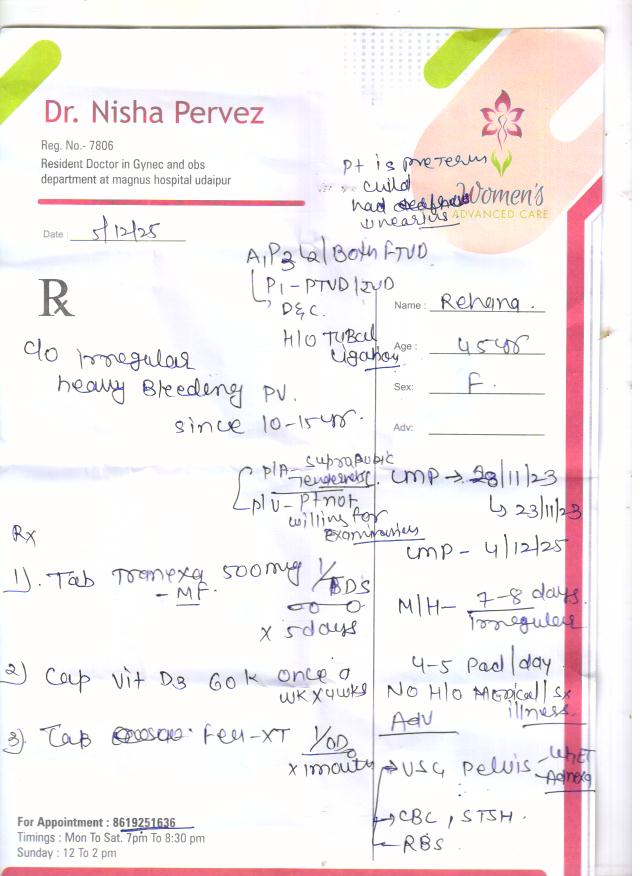 Dr. Nisha Pervez
Reg. No.- 7806
Resident Doctor in Gynec and obs
department at magnus hospital udaipur
Pt is preterm
child
had
Women's
ADVANCED CARE
Date : 5/12/25
A1P3L2/Both FTVD
P1 - PTVD/IUD
D&C.
H/O Tubal
Ligation
Rx
Name : Rehana.
Age : 45 yr
Sex: F.
Adv:
C/o Irregular
heavy Bleeding PV.
since 10-15 yr.
P/A - Suprapubic
Tenderness.
P/V - Pt not
willing for
Examination
LMP → 28/11/23
↳ 23/11/23
LMP - 4/12/25
Rx
1). Tab Tranexa 500mg 1/BDS
- MF.
x 5 days
M/H - 7-8 days
Irregular
4-5 Pad/day
2) Cap Vit D3 60k once a
wk x 4 wks
No H/O Medical/Sx
illness.
3) Tab Feu-XT 1/OD
x 1 month
Adv
→ USG Pelvis - Ut ET
- Adnexa
→ CBC, STSH.
- RBS.
For Appointment : 8619251636
Timings : Mon To Sat. 7pm To 8:30 pm
Sunday : 12 To 2 pm